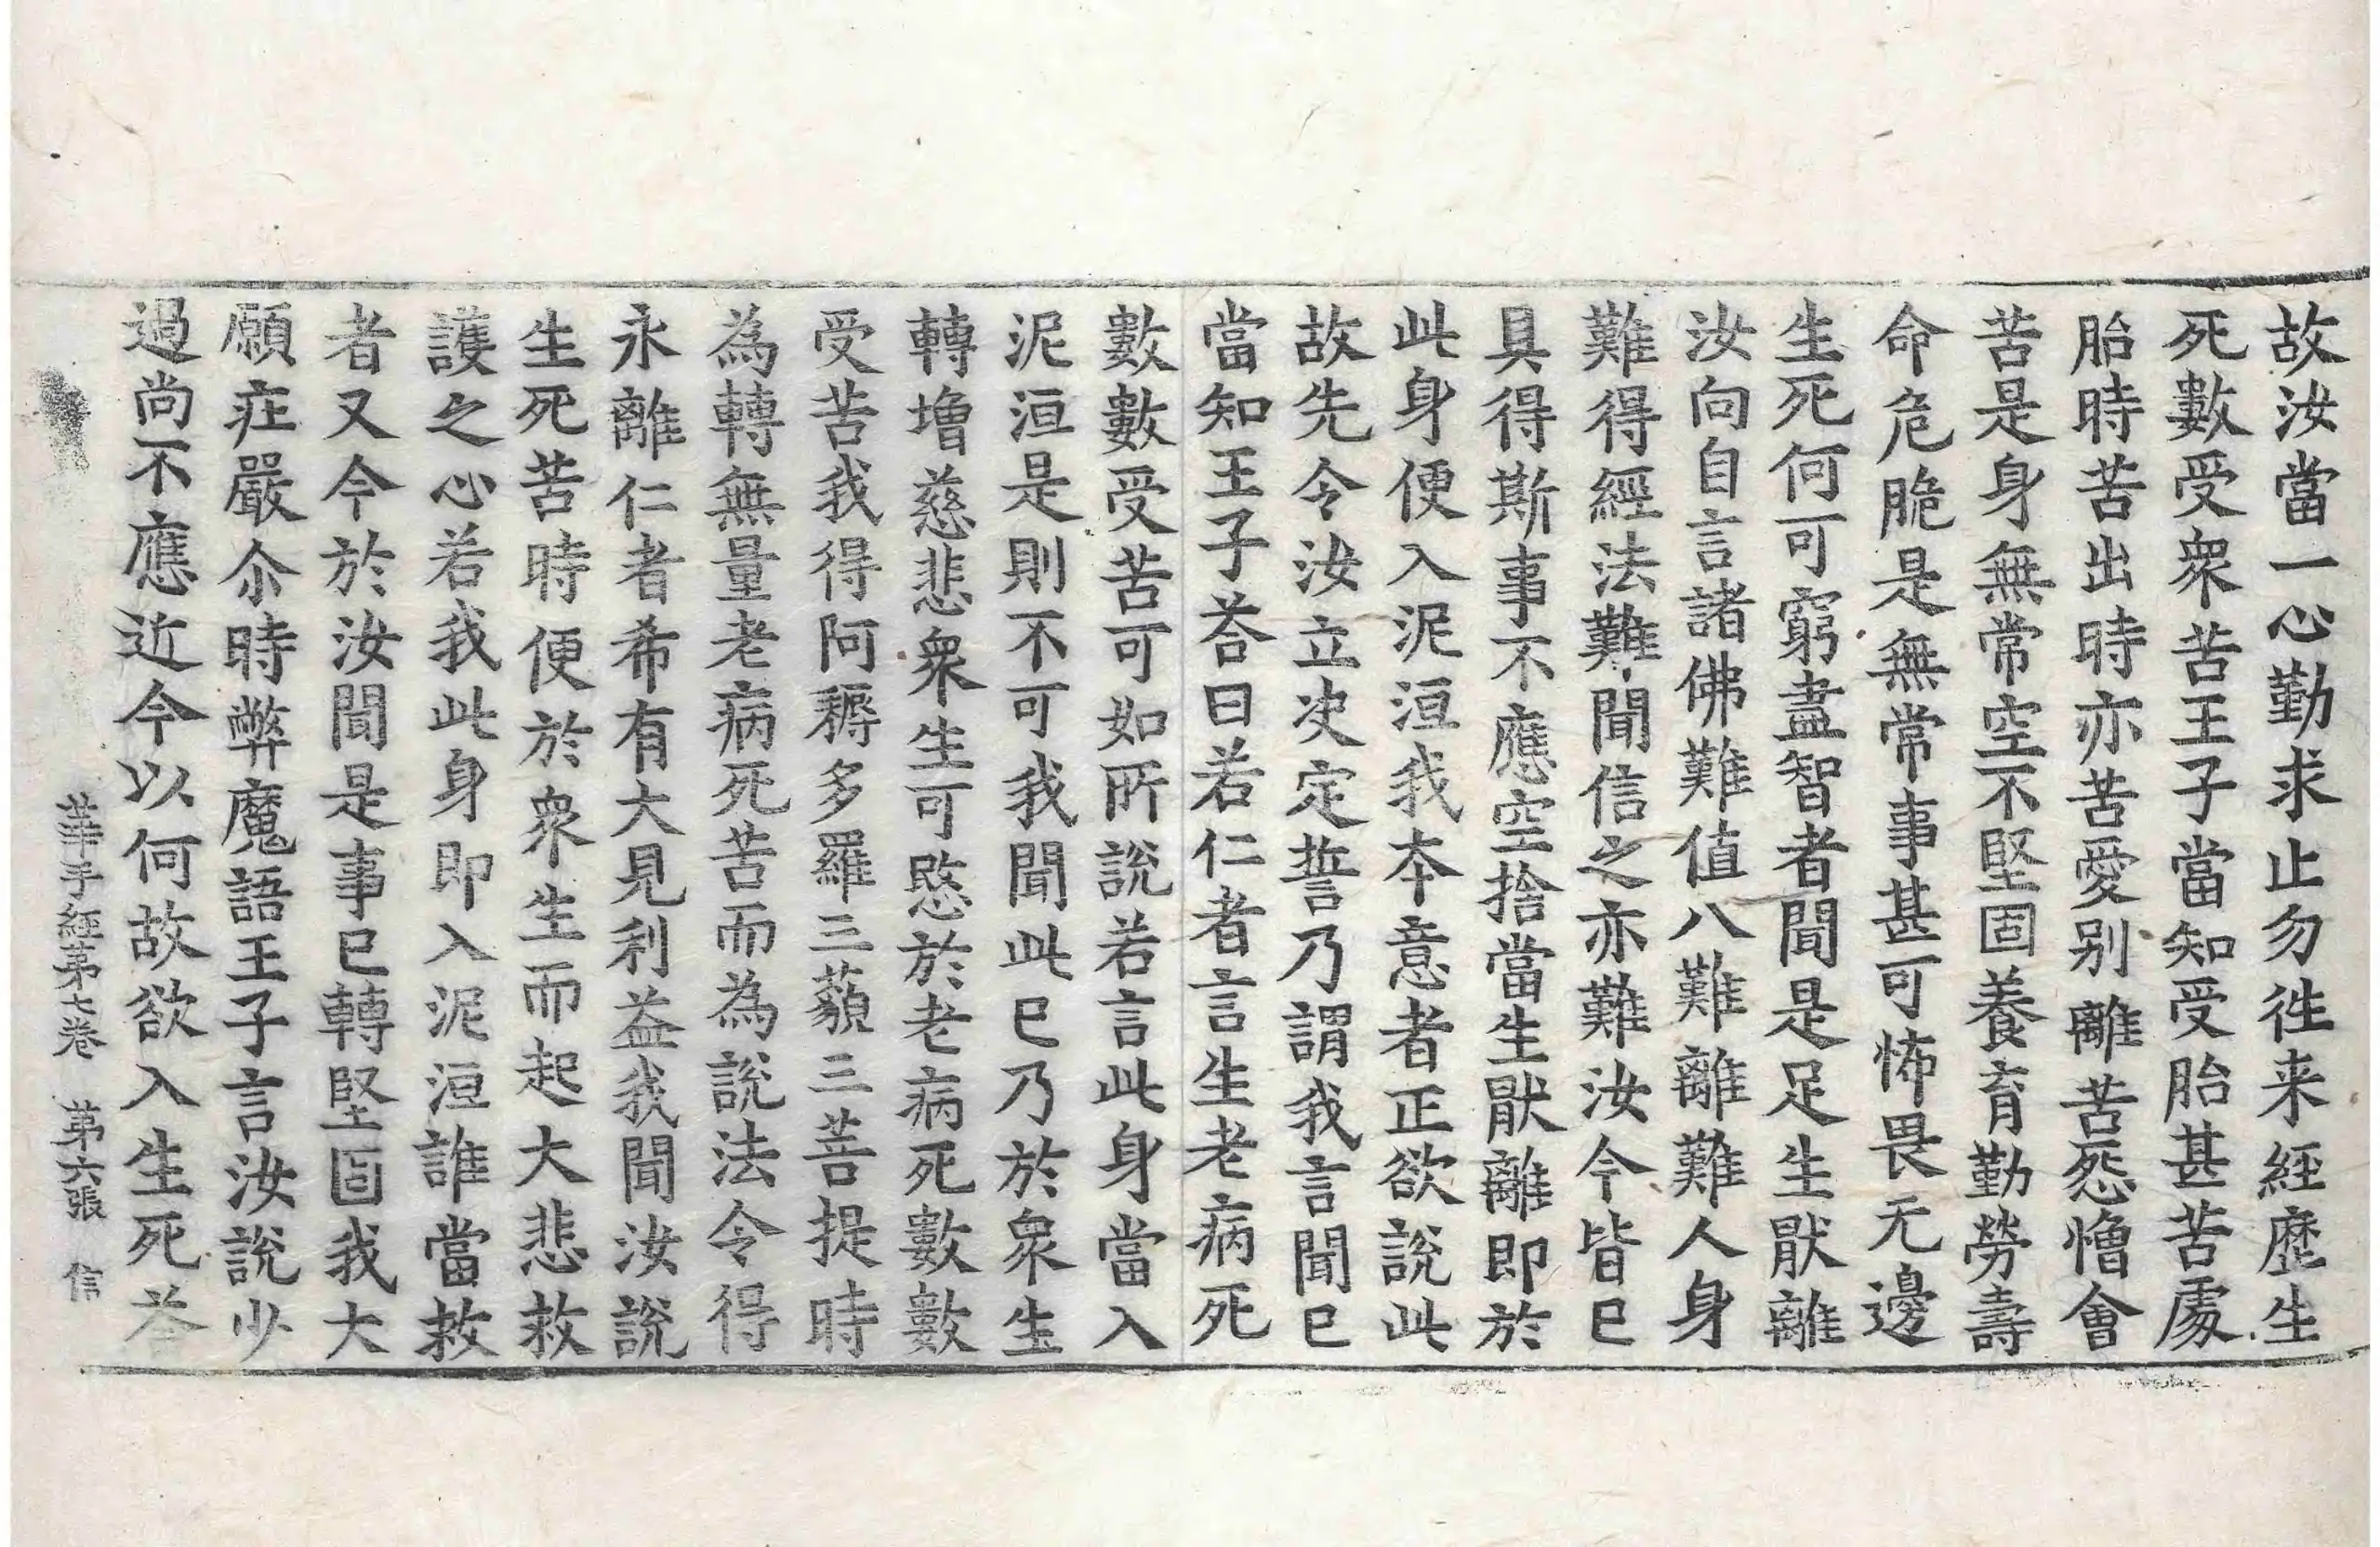 故汝當一心勤求止勿徃来經歷生
死數受衆苦王子當知受胎甚苦處
胎時苦出時亦苦愛别離苦怨憎會
苦是身無常空不堅固養育勤勞壽
命危脆是無常事甚可怖畏无邊
生死何可窮盡智者聞是足生猒離
汝向自言諸佛難值八難離難人身
難得經法難聞信之亦難汝今皆已
具得斯事不應空捨當生猒離即於
此身便入泥洹我本意者正欲説此
故先令汝立决定誓乃謂我言聞已
當知王子荅曰若仁者言生老病死
數數受苦可如所説若言此身當入
泥洹是則不可我聞此已乃於衆生
轉増慈悲衆生可愍於老病死數數
受苦我得阿耨多羅三藐三菩提時
為轉無量老病死苦而為説法令得
永離仁者希有大見利益我聞汝説
生死苦時便於衆生而起大悲救
護之心若我此身即入泥洹誰當救
者又今於汝聞是事已轉堅固我大
願疘嚴尒時弊魔語王子言汝説少
過尚不應近今以何故欲入生死荅
華手經第七卷 第六張 信